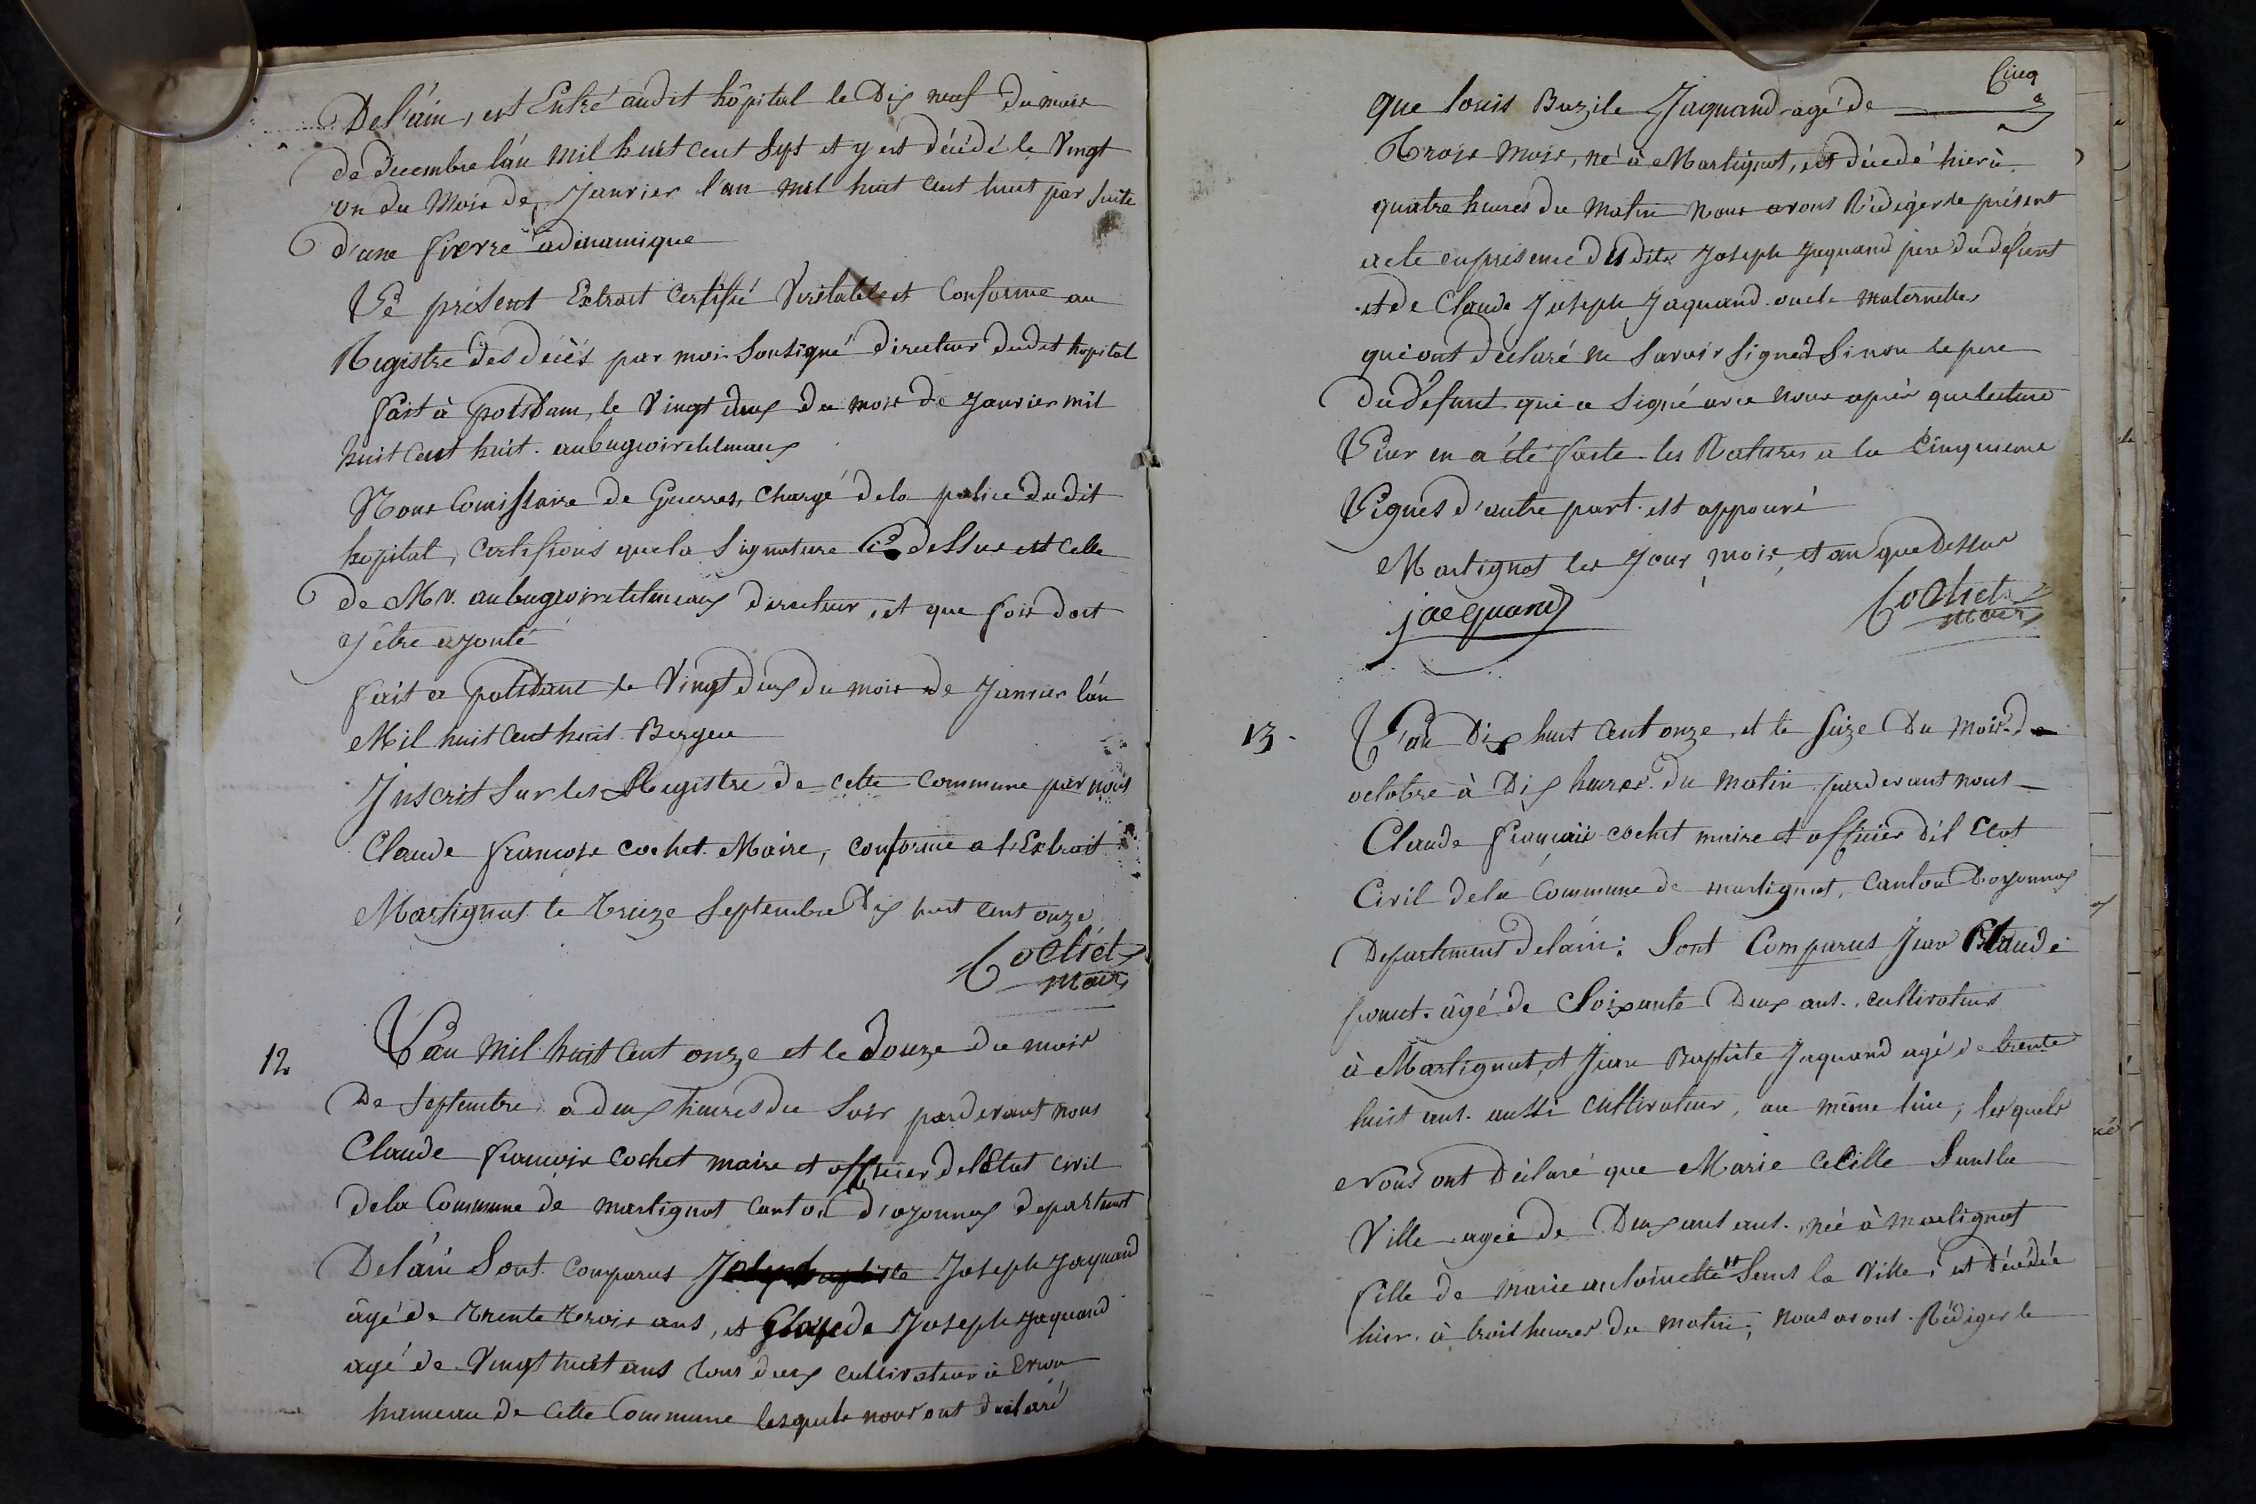 De l'ain, est Entré audit hôpital le Dix neuf du mois
de decembre l'an mil huit cent sept et y est décédé le Vingt
un du Mois de Janvier l'an mil huit cent huit par suite
d'une fievre adinamique
Le présent Extrait Certifié Véritable et Conforme au
Registre des décès par moi Sousigné directeur dudit hopital
fait à potsdam, le Vingt deux du mois de Janvier mil
huit cent huit.
Nous Comissaire de Guerres, chargé de la police dudit
hopital, certifions que la Signature ci dessus est celle
de Mr. directeur, et que foit doit
y être ajouté
fait a potsdam le Vingt deux du mois de Janvier l'an
Mil huit cent huit Burgeu
Inscrit Sur les Registre de cette commune par nous
Claude françois cochet Maire, conforme a l'Extrait
Martignat le treize Septembre Dix huit cent onze
Cochet
maire
12. L'an mil huit cent onze et le douze du mois
De Septembre a deux heures du Soir pardevant nous
Claude françois cochet maire et officier de l'Etat civil
de la Commune de martignat canton d'oyonnax departement
De l'ain Sont comparus Joseph Jaquand
âgé de trente trois ans, et Claude Joseph Jaquand
agé de Vingt huit ans tous deux cultivateur à Evron
hameau de cette Commune lesquels nous ont déclaré
Cinq
que louis Bazile Jaquand agé de
Trois mois, né à Martignat, est décedé hier à
quatre heures du matin nous avons Rédiger le présent
acte en présence desdits Joseph Jaquand pere du défunt
et de Claude Joseph Jaquand oncle maternelle,
qui ont déclaré ne Savoir Signer Sinon le pere
du Défunt qui a Signé avec nous après que lecture
Leur en a été faite les Ratures a la Cinquieme
Lignes d'autre part est appouvé
Martignat les Jour, mois, et an que Dessus
jacquand
Cochet
maire
13. L'an Dix huit cent onze, et le Seize du mois de
octobre à Dix heures du matin pardevant nous
Claude françois cochet maire et officier dél Etat
Civil de la Commune de martignat, canton Doyonnax
Departement delain: Sont Comparus Jean Claude
âgé de Soixante Deux ans. cultivateur
à Martignat, et Jean Baptiste Jaquand agé de trente
huit ans. aussi cultivateur, au même lieu, les quels
nous ont Déclaré que Marie Cecille Sans la
Ville agée de Deux ans ans. née à martignat
fille de marie antoinette Sans la Ville, est décédée
hier. à trois heures du matin, nous avons Rédiger le